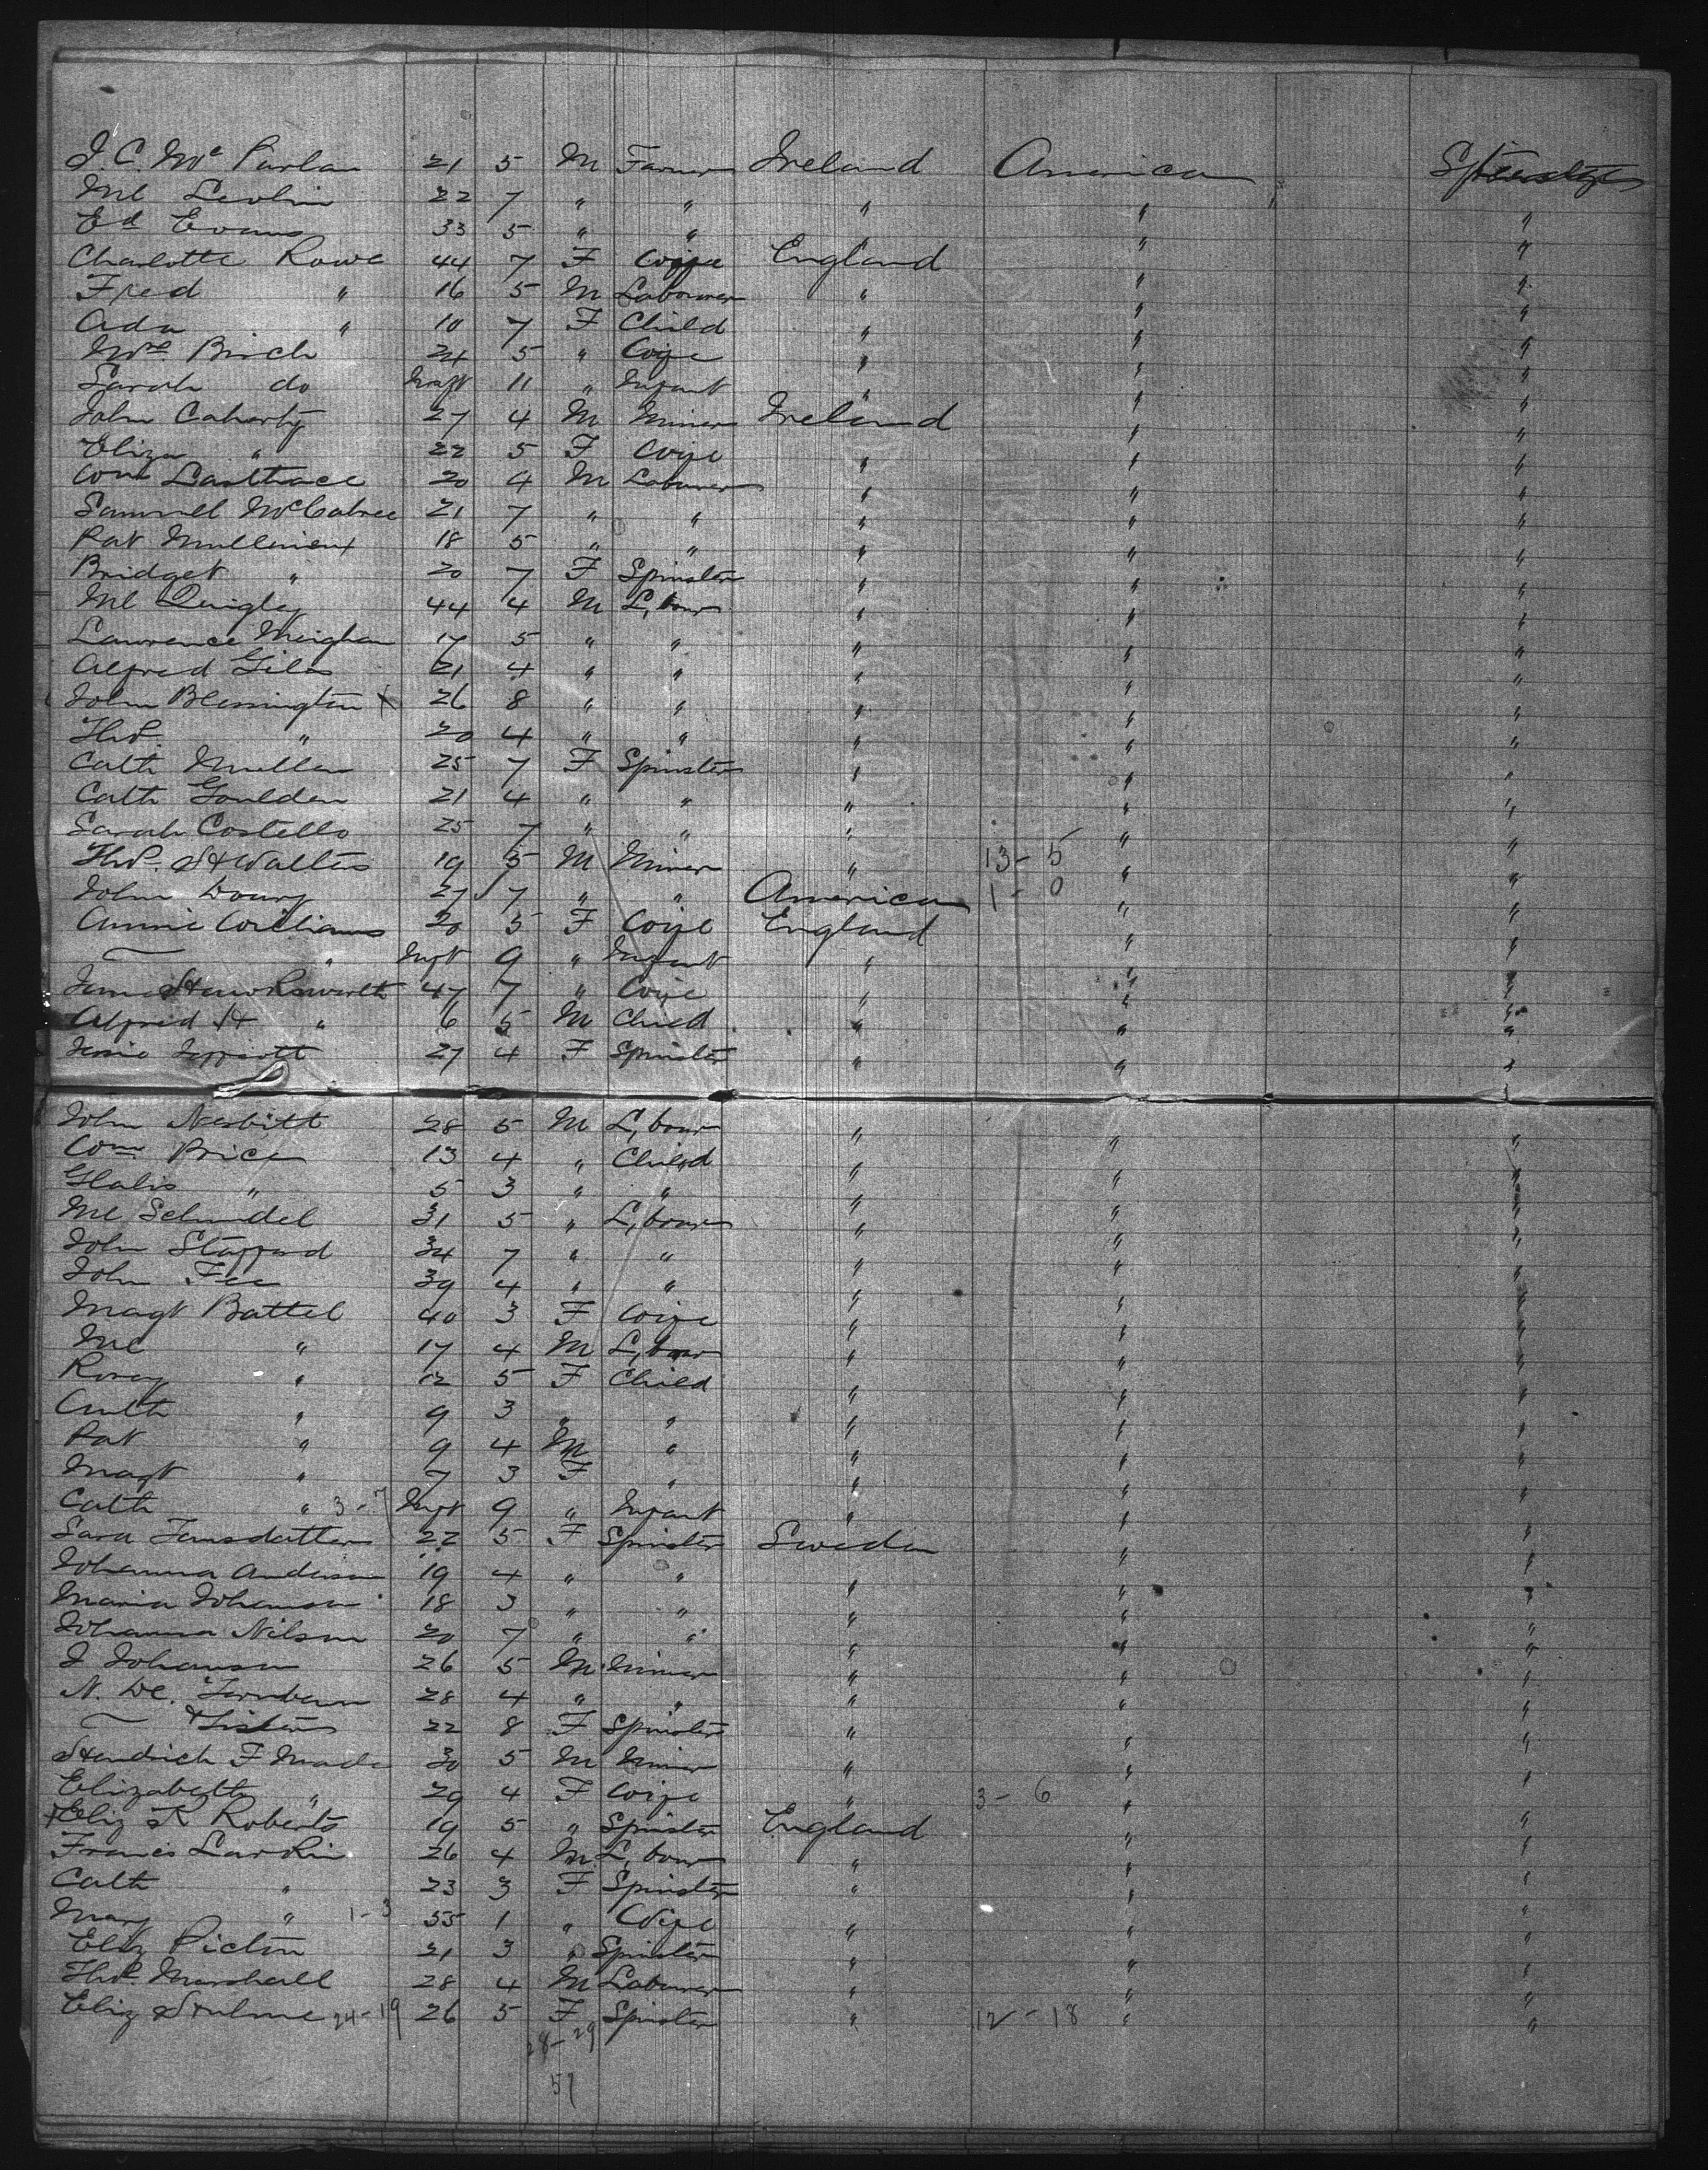 J. C. Mc Parlan 21 5 M Farmer Ireland America Steerage
Ml Devlin 22 7 " " " " "
Ed Evans 33 5 " " " " "
Charlotte Rowe 44 7 F Wife England " "
Fred " 16 5 M Labourer " " "
Ada " 10 7 F Child " " "
Mrs Birch 24 5 " Wife " " "
Sarah do Inft 11 " Infant " " "
John Caherty 27 4 M Miner Ireland " "
Eliza " 22 5 F Wife " " "
Wm 20 4 M Labourer " " "
Samuel McCabree 21 7 " " " " "
Pat Mullineux 18 5 " " " " "
Bridget " 20 7 F Spinster " " "
Ml Quigley 44 4 M L,bour " " "
Lawrence Meighan 17 5 " " " " "
Alfred Giles 21 4 " " " " "
John Blessington 26 8 " " " " "
Thos " 20 4 " " " " "
Cath Mullen 25 7 F Spinster " " "
Cath Goulden 21 4 " " " " "
Sarah Costello 25 7 " " " " "
Thos. H Walters 19 5 M Miner " 13-5 " "
John 27 7 " " America 1-0 " "
Annie Williams 20 5 F Wife England " "
— " Inft 9 " Infant " " "
Hawksworth 47 7 " Wife " " "
Alfred H " 6 5 M Child " " "
27 4 F Spinster " " "
John Nesbitt 28 5 M L,bour " " "
Wm Price 13 4 " Child " " "
" 5 3 " " " " "
Ml Schindel 31 5 " L,bour " " "
John Stafford 34 7 " " " " "
John Fee 39 4 " " " " "
Magt Battel 40 3 F Wife " " "
Ml " 17 4 M L,bour " " "
Rosey " 12 5 F Child " " "
" 9 3 " " " " "
Pat " 9 4 M " " " "
Magt " 7 3 F " " " "
Cath " 3-7 Inft 9 " Infant " " "
Sara Jansdatter 22 5 F Spinster Sweden " "
Johanna Anderson 19 4 " " " " "
Maria Johanson 18 3 " " " " "
Johanna Nilson 20 7 " " " " "
J Johanson 26 5 M Miner " " "
N. 28 4 " " " " "
— 22 8 F Spinster " " "
Hendrich F Made 30 5 M Miner " " "
Elizabeth " 29 4 F Wife " 3-6 " "
Eliz R Roberts 19 5 " Spinster England " "
Francis Larkin 26 4 M L,bour " " "
Cath " 23 3 F Spinster " " "
Mary " 1-3 55 1 " Wife " " "
Eliz Picton 21 3 " Spinster " " "
Thos. Marshall 28 4 M Labourer " " "
Eliz Hulme 24-19 26 5 F Spinster " 12-18 " "
28-29
57